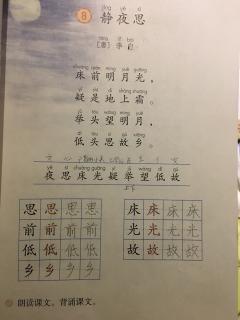 jìng yè sī
8 静夜思
táng lǐ bái
[唐]李白
chuáng qián míng yuè guāng
床前明月光，
yí shì dì shàng shuāng
疑是地上霜。
jǔ tóu wàng míng yuè
举头望明月，
dī tóu sī gù xiāng
低头思故乡。
yè sī chuáng guāng yí jǔ wàng dī gù
夜思床光疑举望低故
思思思思 床床床床
前前前前 光光光光
低低低低 故故故故
乡乡乡乡
朗读课文。背诵课文。